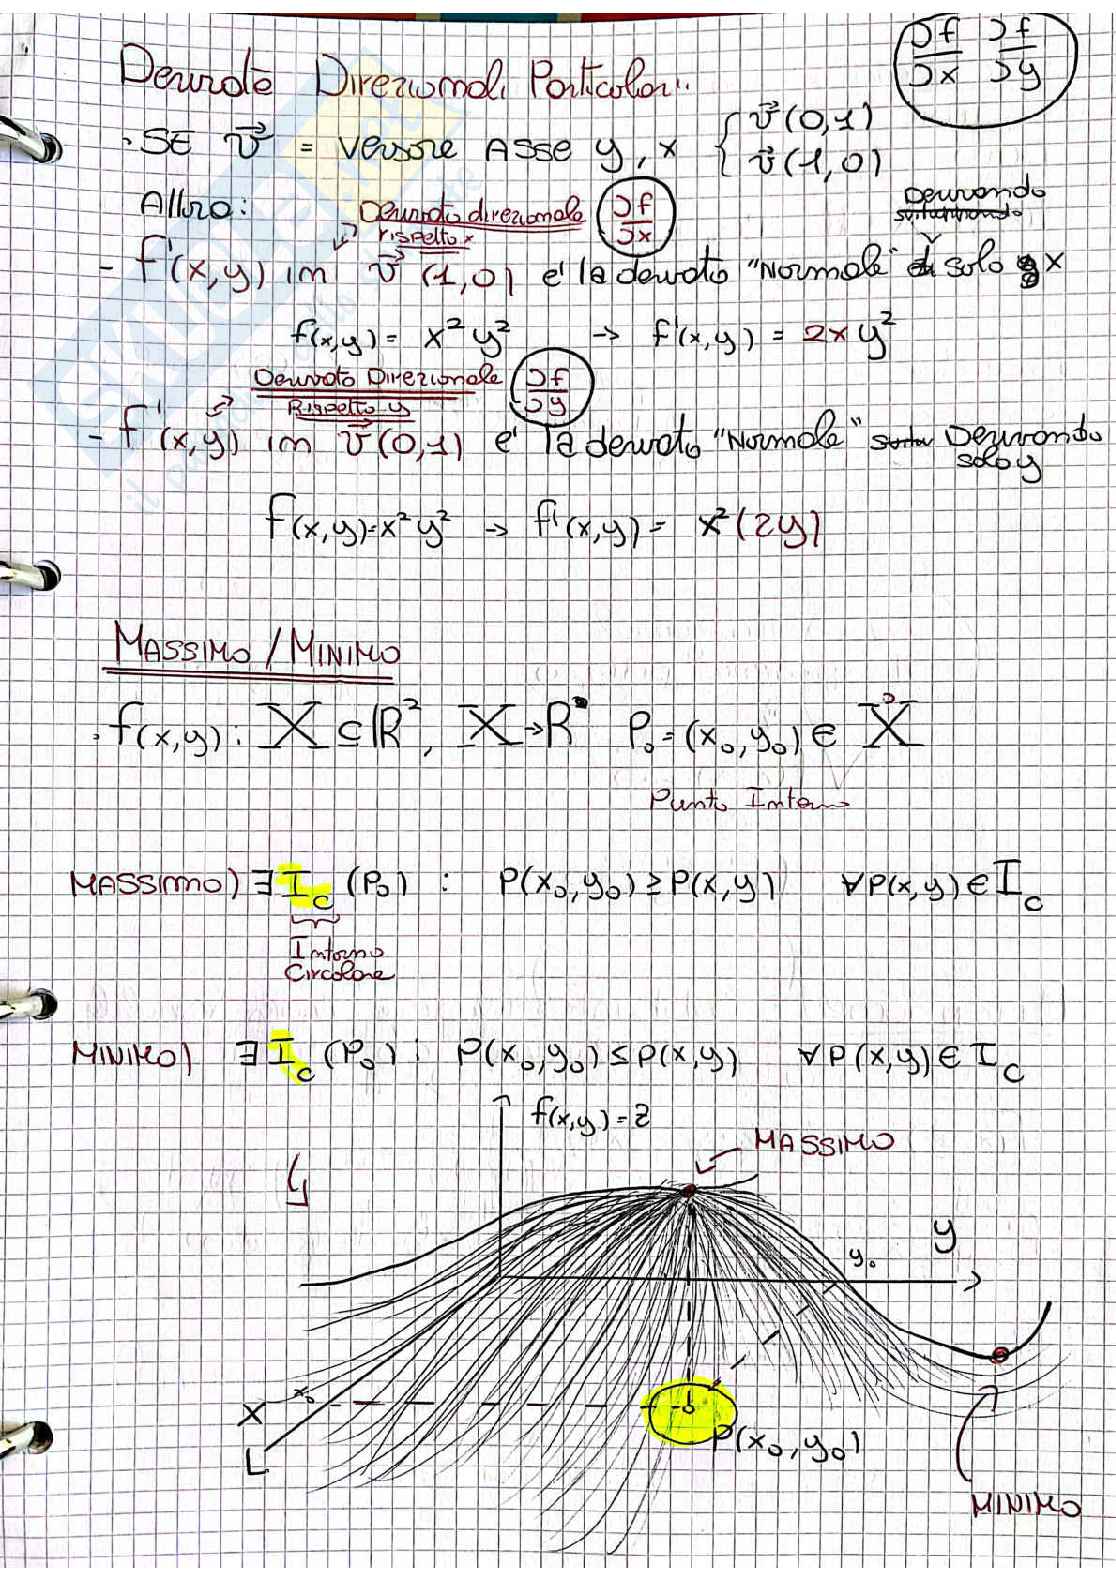 Derivate Direzionali Particolari:
∂f/∂x ∂f/∂y
• SE v⃗ = versore ASSE y, x { v⃗(0,1) v⃗(1,0)
Allora:
Derivata direzionale rispetto x ∂f/∂x
Derivando
- f'(x,y) in v⃗(1,0) e' la derivata "Normale" solo x
f(x,y) = x²y² → f'(x,y) = 2xy²
Derivata Direzionale ∂f/∂y
Rispetto y
- f'(x,y) in v⃗(0,1) e' la derivata "Normale" Derivando
solo y
f(x,y)=x²y² → f'(x,y) = x²(2y)
MASSIMO / MINIMO
• f(x,y): X ⊆ ℝ², X → R P₀ = (x₀,y₀) ∈ X̊
Punto Interno
MASSIMO) ∃ I_c (P₀) : P(x₀,y₀) ≥ P(x,y) ∀P(x,y) ∈ I_c
Intorno
Circolare
MINIMO) ∃ I_c (P₀) : P(x₀,y₀) ≤ P(x,y) ∀P(x,y) ∈ I_c
f(x,y) = z
MASSIMO
y
y₀
x₀
x
P(x₀,y₀)
MINIMO